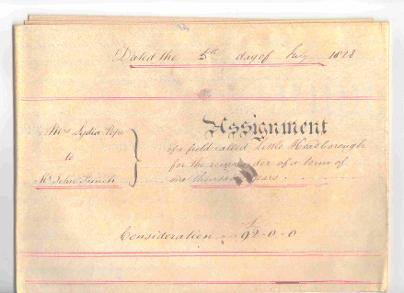 Dated the 5th day of 1828
Assignment
Mrs Lydia
of a field called Little Hasborough
to
for the remainder of a term of
Mr John French
one thousand years.
Consideration £92-0-0